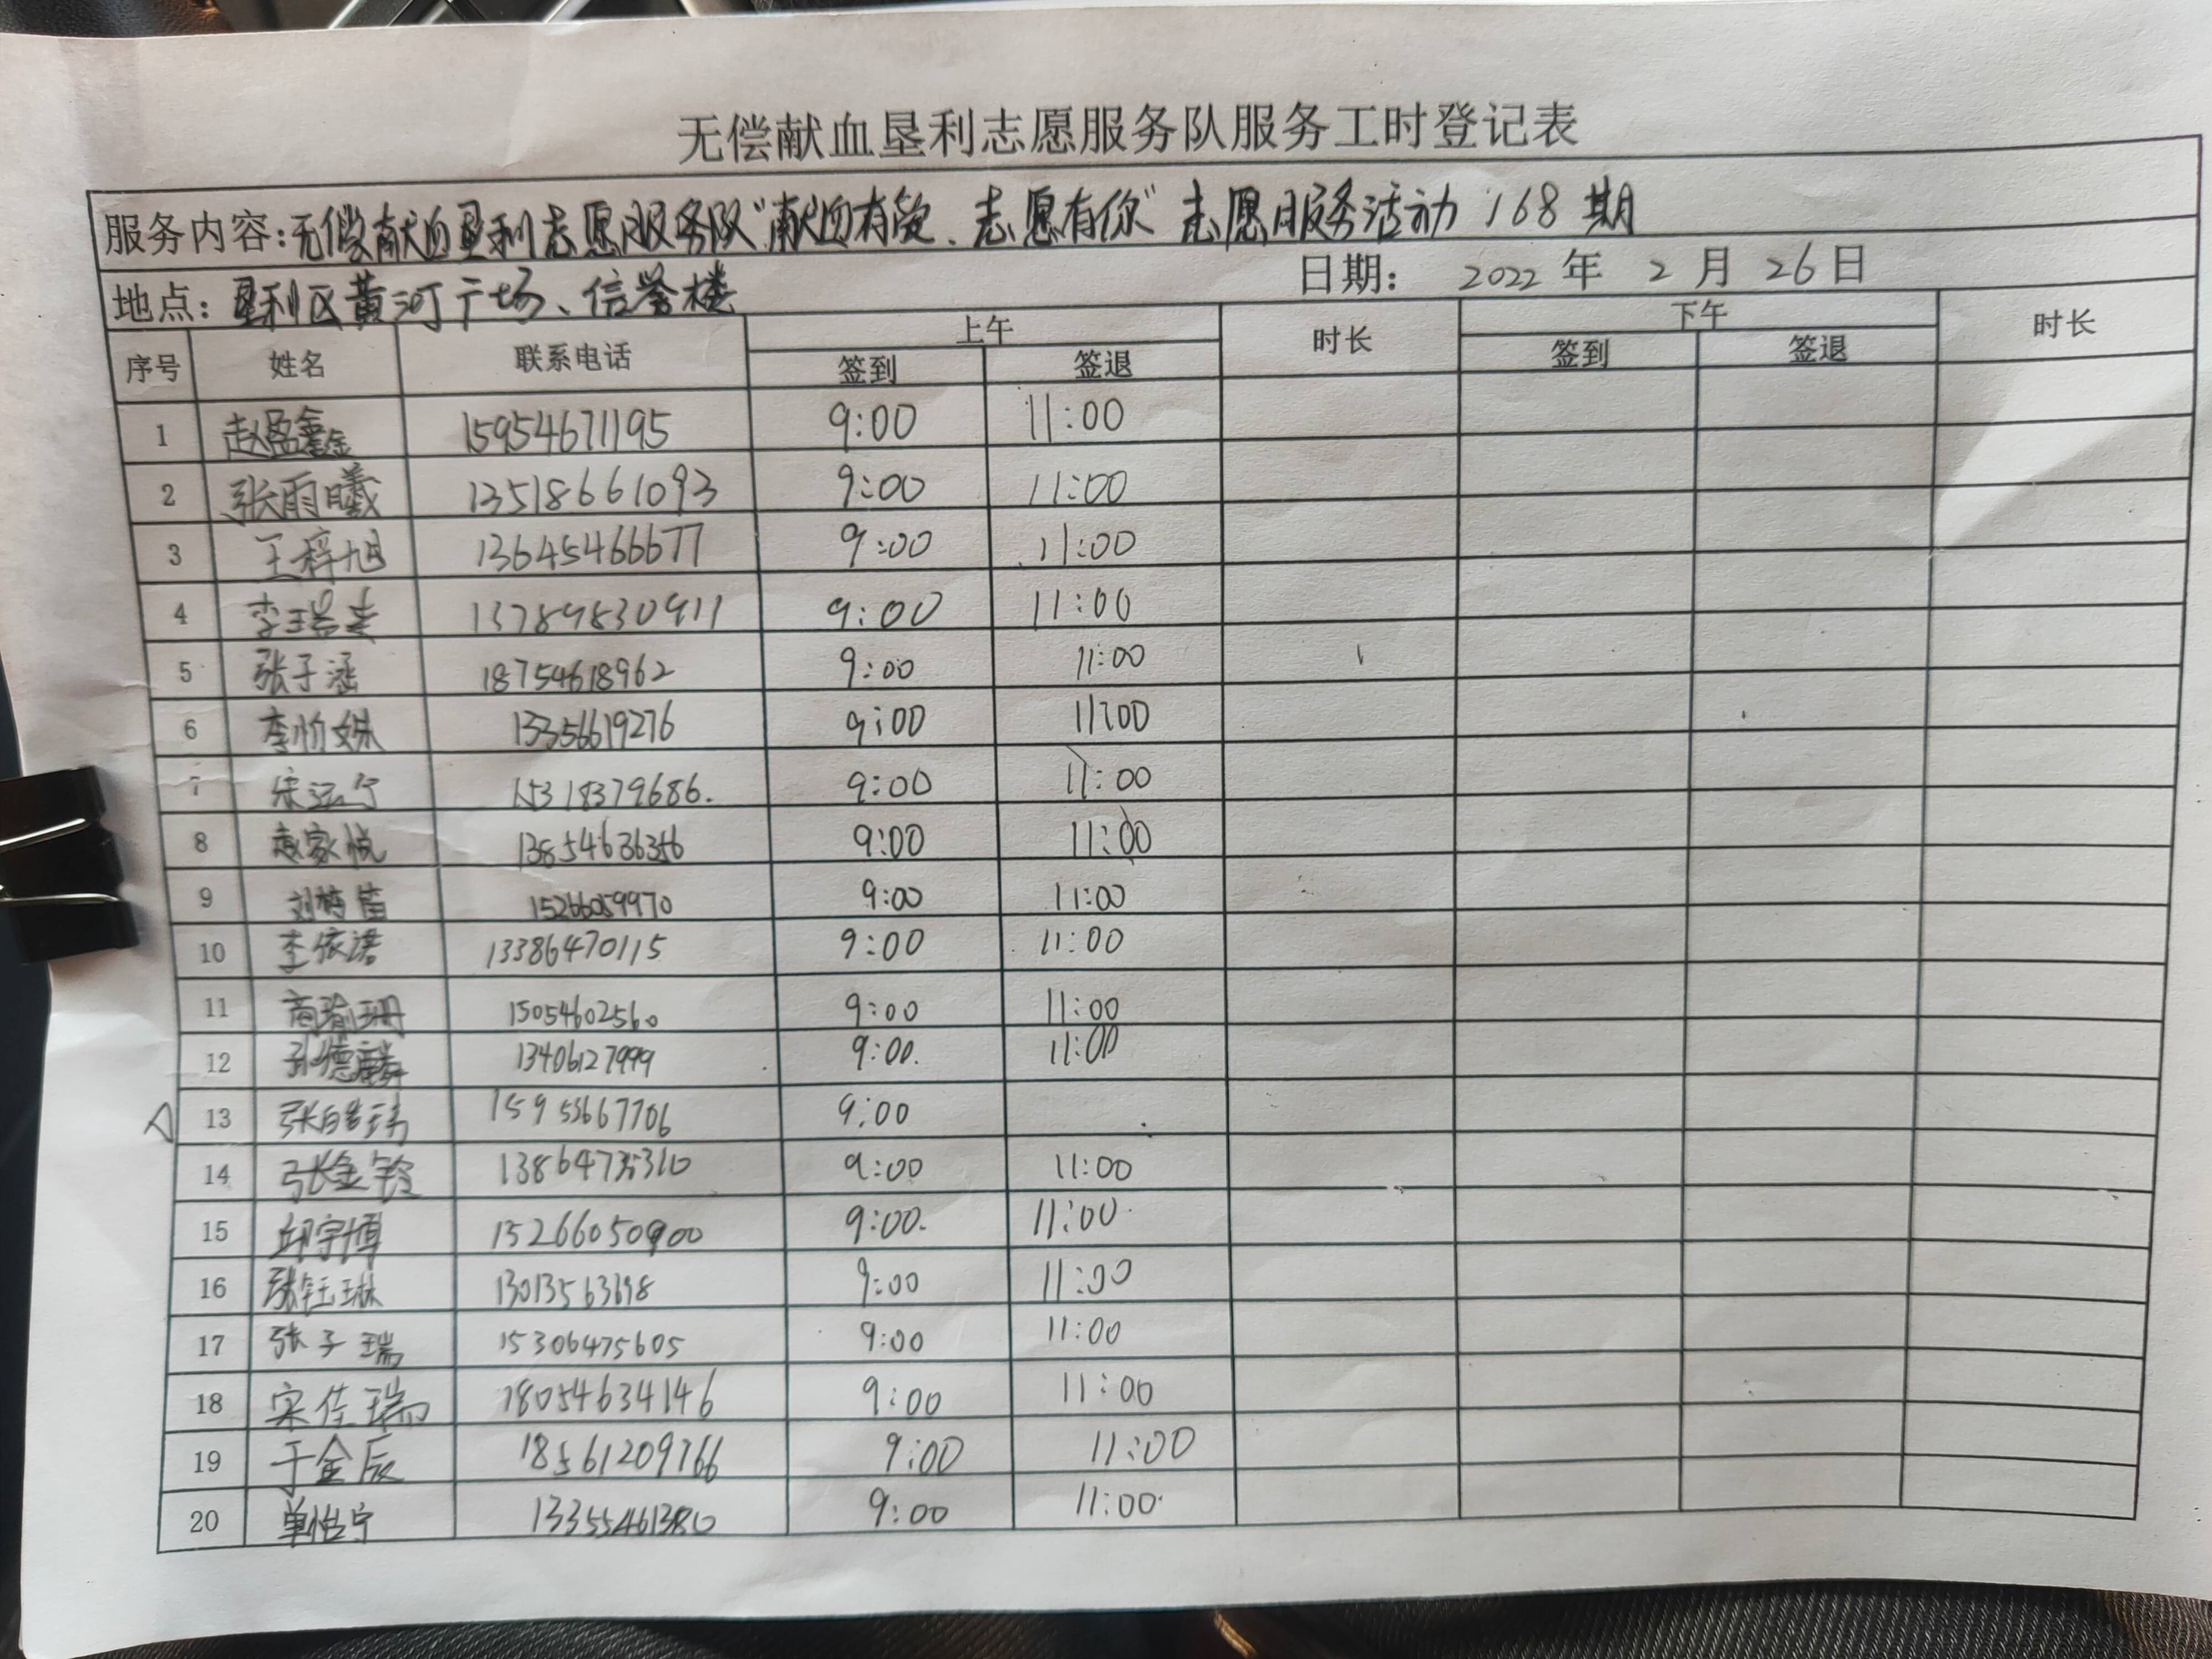 无偿献血垦利志愿服务队服务工时登记表
服务内容:无偿献血垦利志愿服务队“献血有爱、志愿有你”志愿服务活动168期
地点:垦利区黄河广场、信誉楼 日期: 2022年 2月 26日
序号 姓名 联系电话 上午 时长 下午 时长
签到 签退 签到 签退
1 赵盈鑫 15954671195 9:00 11:00
2 张雨曦 13518661093 9:00 11:00
3 王梓旭 13645466677 9:00 11:00
4 李瑞 13789830911 9:00 11:00
5 张子涵 18754618962 9:00 11:00
6 李怡姝 13356619276 9:00 11:00
7 15318379686. 9:00 11:00
8 赵家悦 13854636356 9:00 11:00
9 刘梅笛 15266059970 9:00 11:00
10 李依诺 13386470115 9:00 11:00
11 商瑜珊 15054602560 9:00 11:00
12 孙德麟 13406127999 9:00. 11:00
13 张皓玮 15953667706 9:00
14 张金铃 13864735310 9:00 11:00
15 邱宇博 15266050900 9:00. 11:00.
16 张钰琳 13013563698 9:00 11:00
17 张子瑞 15306475605 9:00 11:00
18 宋佳瑞 18054634146 9:00 11:00
19 于金辰 18561209766 9:00 11:00
20 单怡宁 13355461380 9:00 11:00.